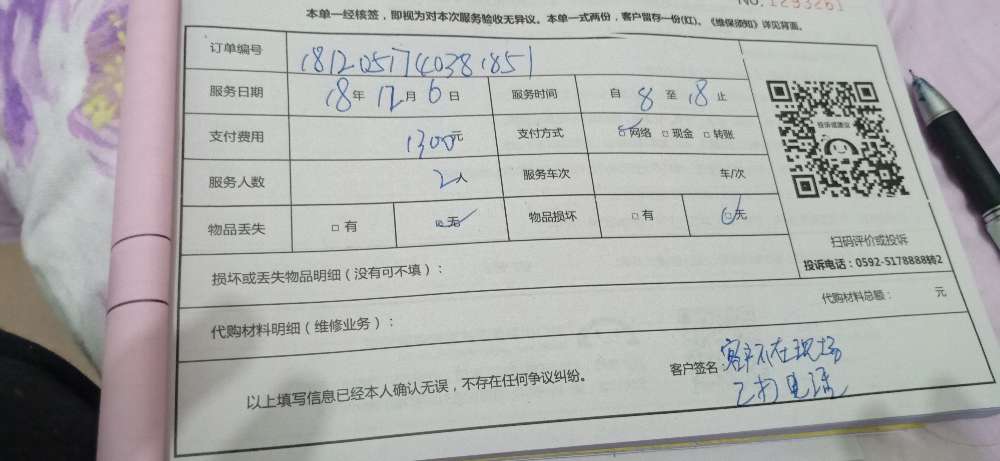 NO.1293261
本单一经核签，即视为对本次服务验收无异议。本单一式两份，客户留存一份(红)。《维保须知》详见背面。
订单编号 1812051740381851
服务日期 18年12月6日 服务时间 自8至18止
支付费用 1300元 支付方式 网络 □现金 □转账
服务人数 2人 服务车次 车/次
物品丢失 □有 □无 物品损坏 □有 □无
投诉或建议
扫码评价或投诉
投诉电话：0592-5178888转2
损坏或丢失物品明细（没有可不填）：
代购材料明细（维修业务）： 代购材料总额： 元
以上填写信息已经本人确认无误，不存在任何争议纠纷。 客户签名：客户不在现场
已打电话